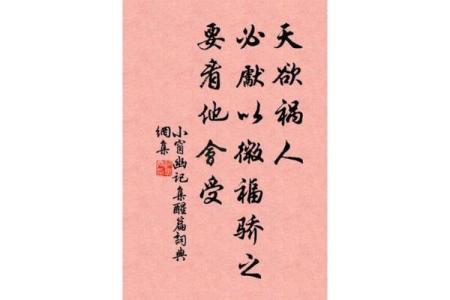 天欲祸人
必獻以微福骄之
要看他會受
小窗幽记集醒篇詞典
網集